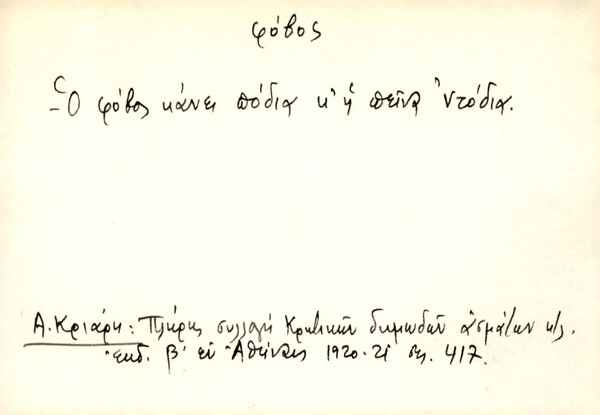 φόβος
-Ὁ φόβος κάνει πόδια κ' ἡ πεῖνα 'ντόδια.
Α. Κριάρη: Πλήρης συλλογή Κρητικῶν δημωδῶν ᾀσμάτων κτλ.
ἐκδ. β' ἐν Ἀθήναις 1920-21 σελ. 417.